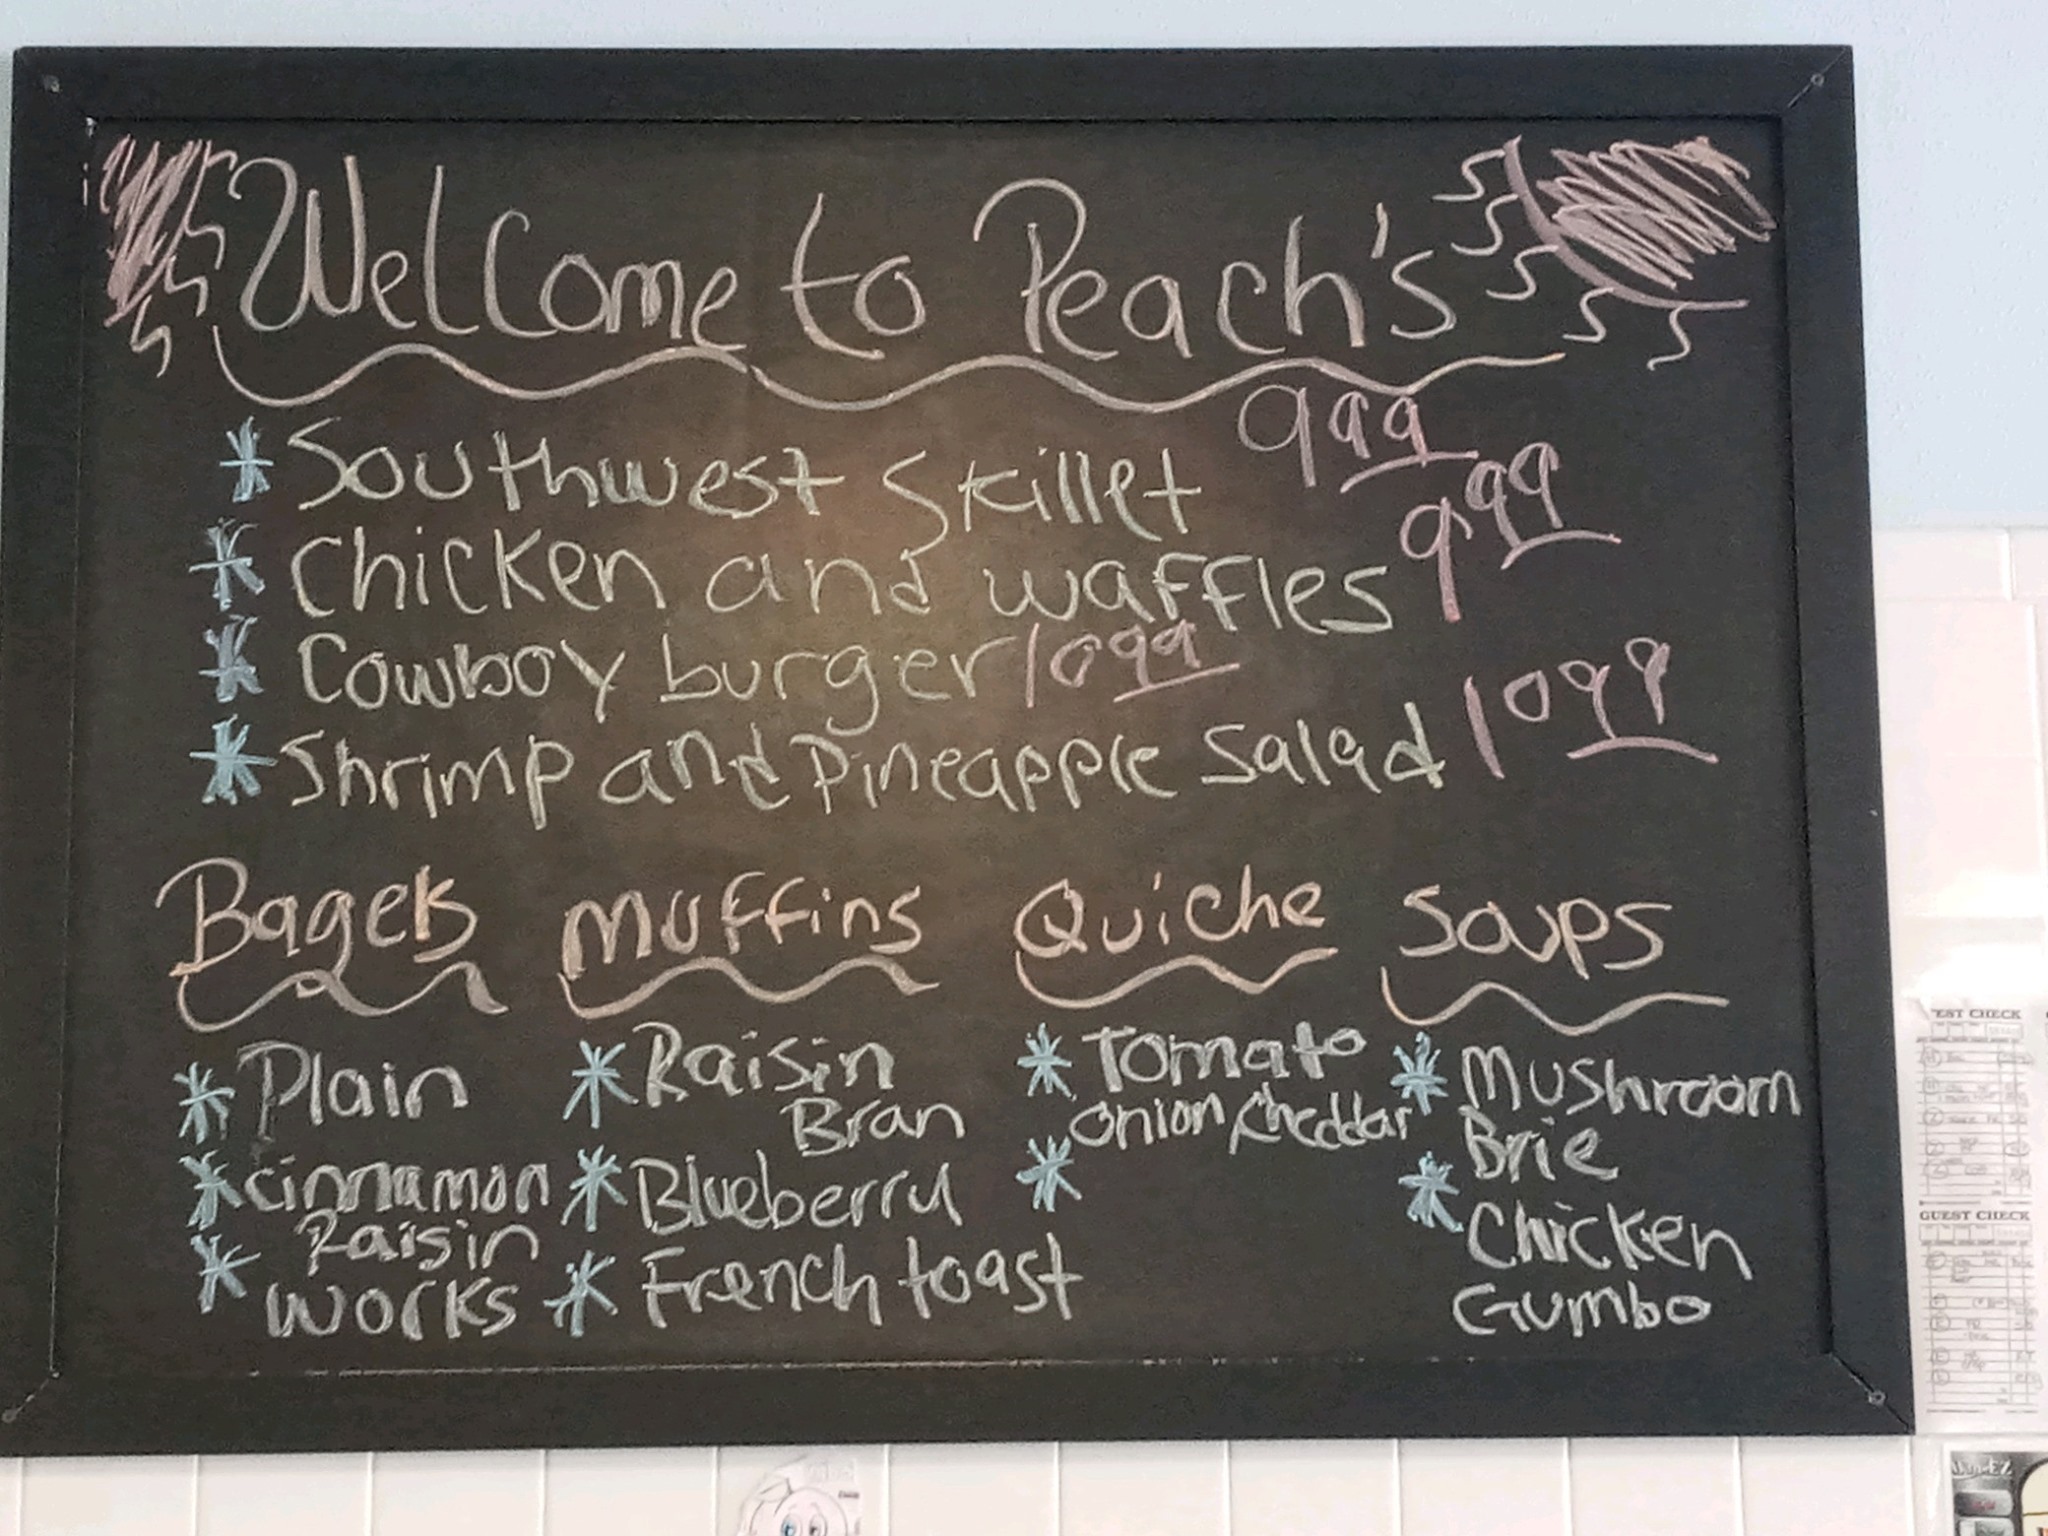 Welcome to Peach's
* Southwest Skillet 999
* Chicken and waffles 999
* Cowboy burger 1099
* Shrimp and Pineapple Salad 1099
Bagels
* Plain
* cinnamon
Raisin
* works
Muffins
* Raisin
Bran
* Blueberry
* French toast
Quiche
* Tomato
onion cheddar
*
Soups
* Mushroom
Brie
* Chicken
Gumbo
EST CHECK
GUEST CHECK